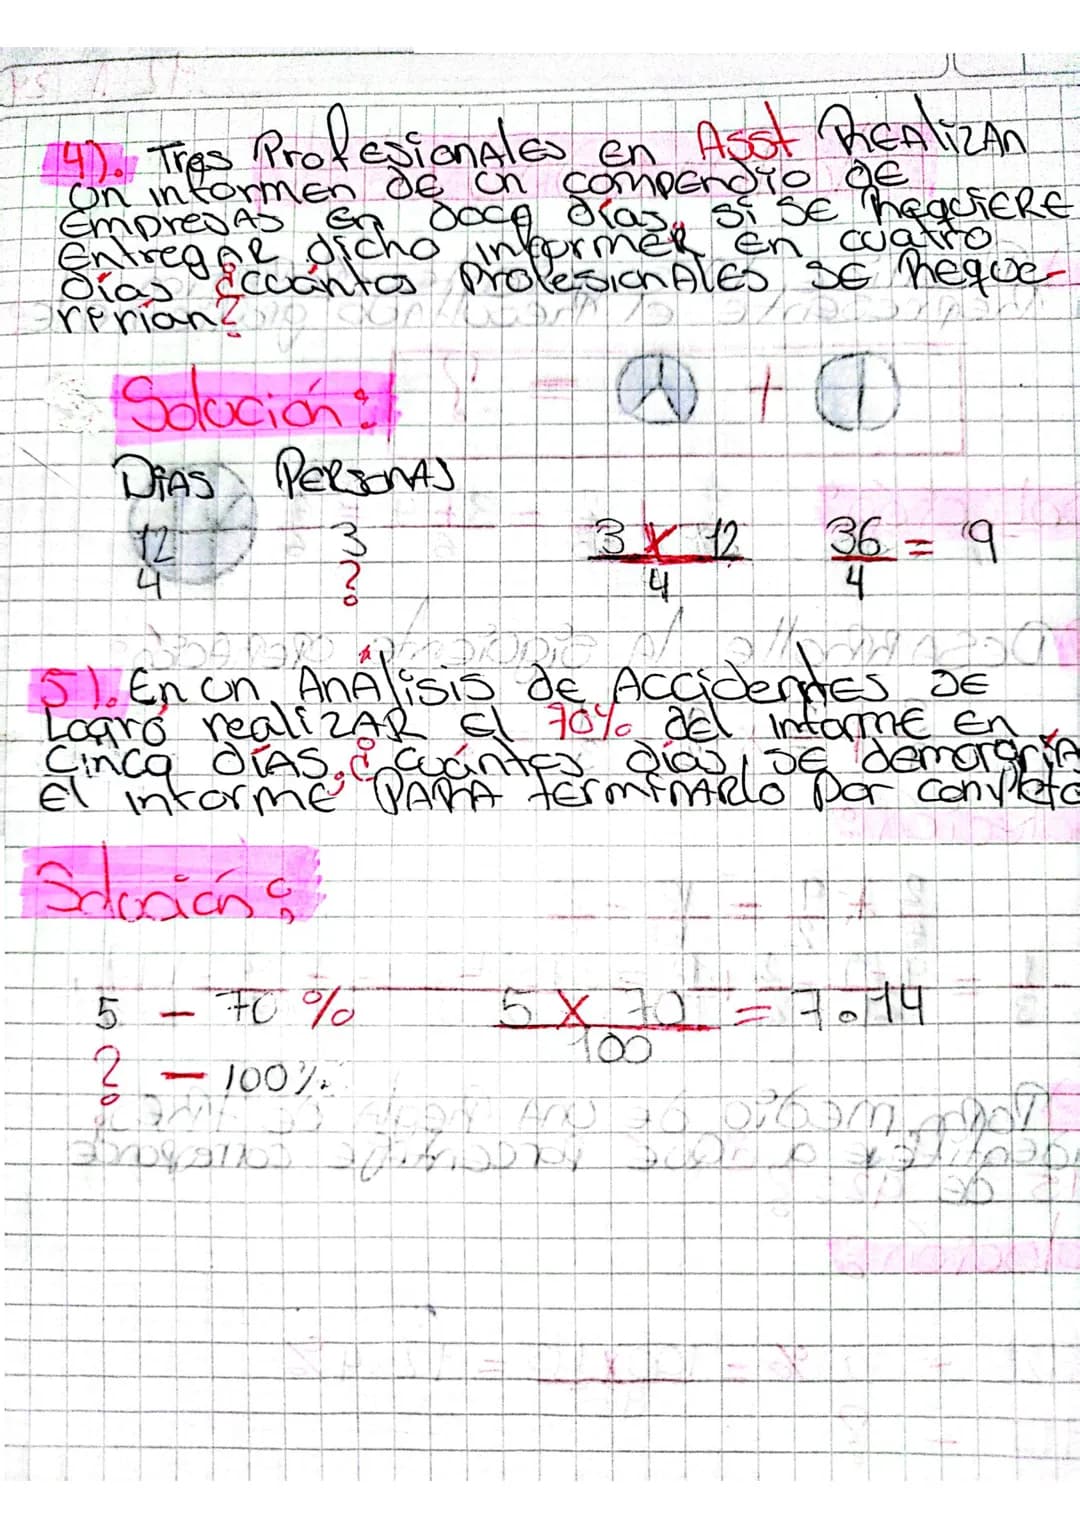 4). Tres Profesionales en Asst REALIZAN
un informen de un compendio de
Empresas en doce días, si se requiere
Entregar dicho informen en cuatro
días ¿cuántos Profesionales se reque-
rerian?
Solución:
Días Personas
12 3 3 x 12 36 = 9
4 ? 4 4
5). En un Análisis de Accidentes se
Logró realizar el 70% del informe en
Cinco días, ¿cuántos días, se demoraría
El informe para terminarlo por completo
Solución:
5 - 70 % 5 x 70 = 7.14
? - 100% 100